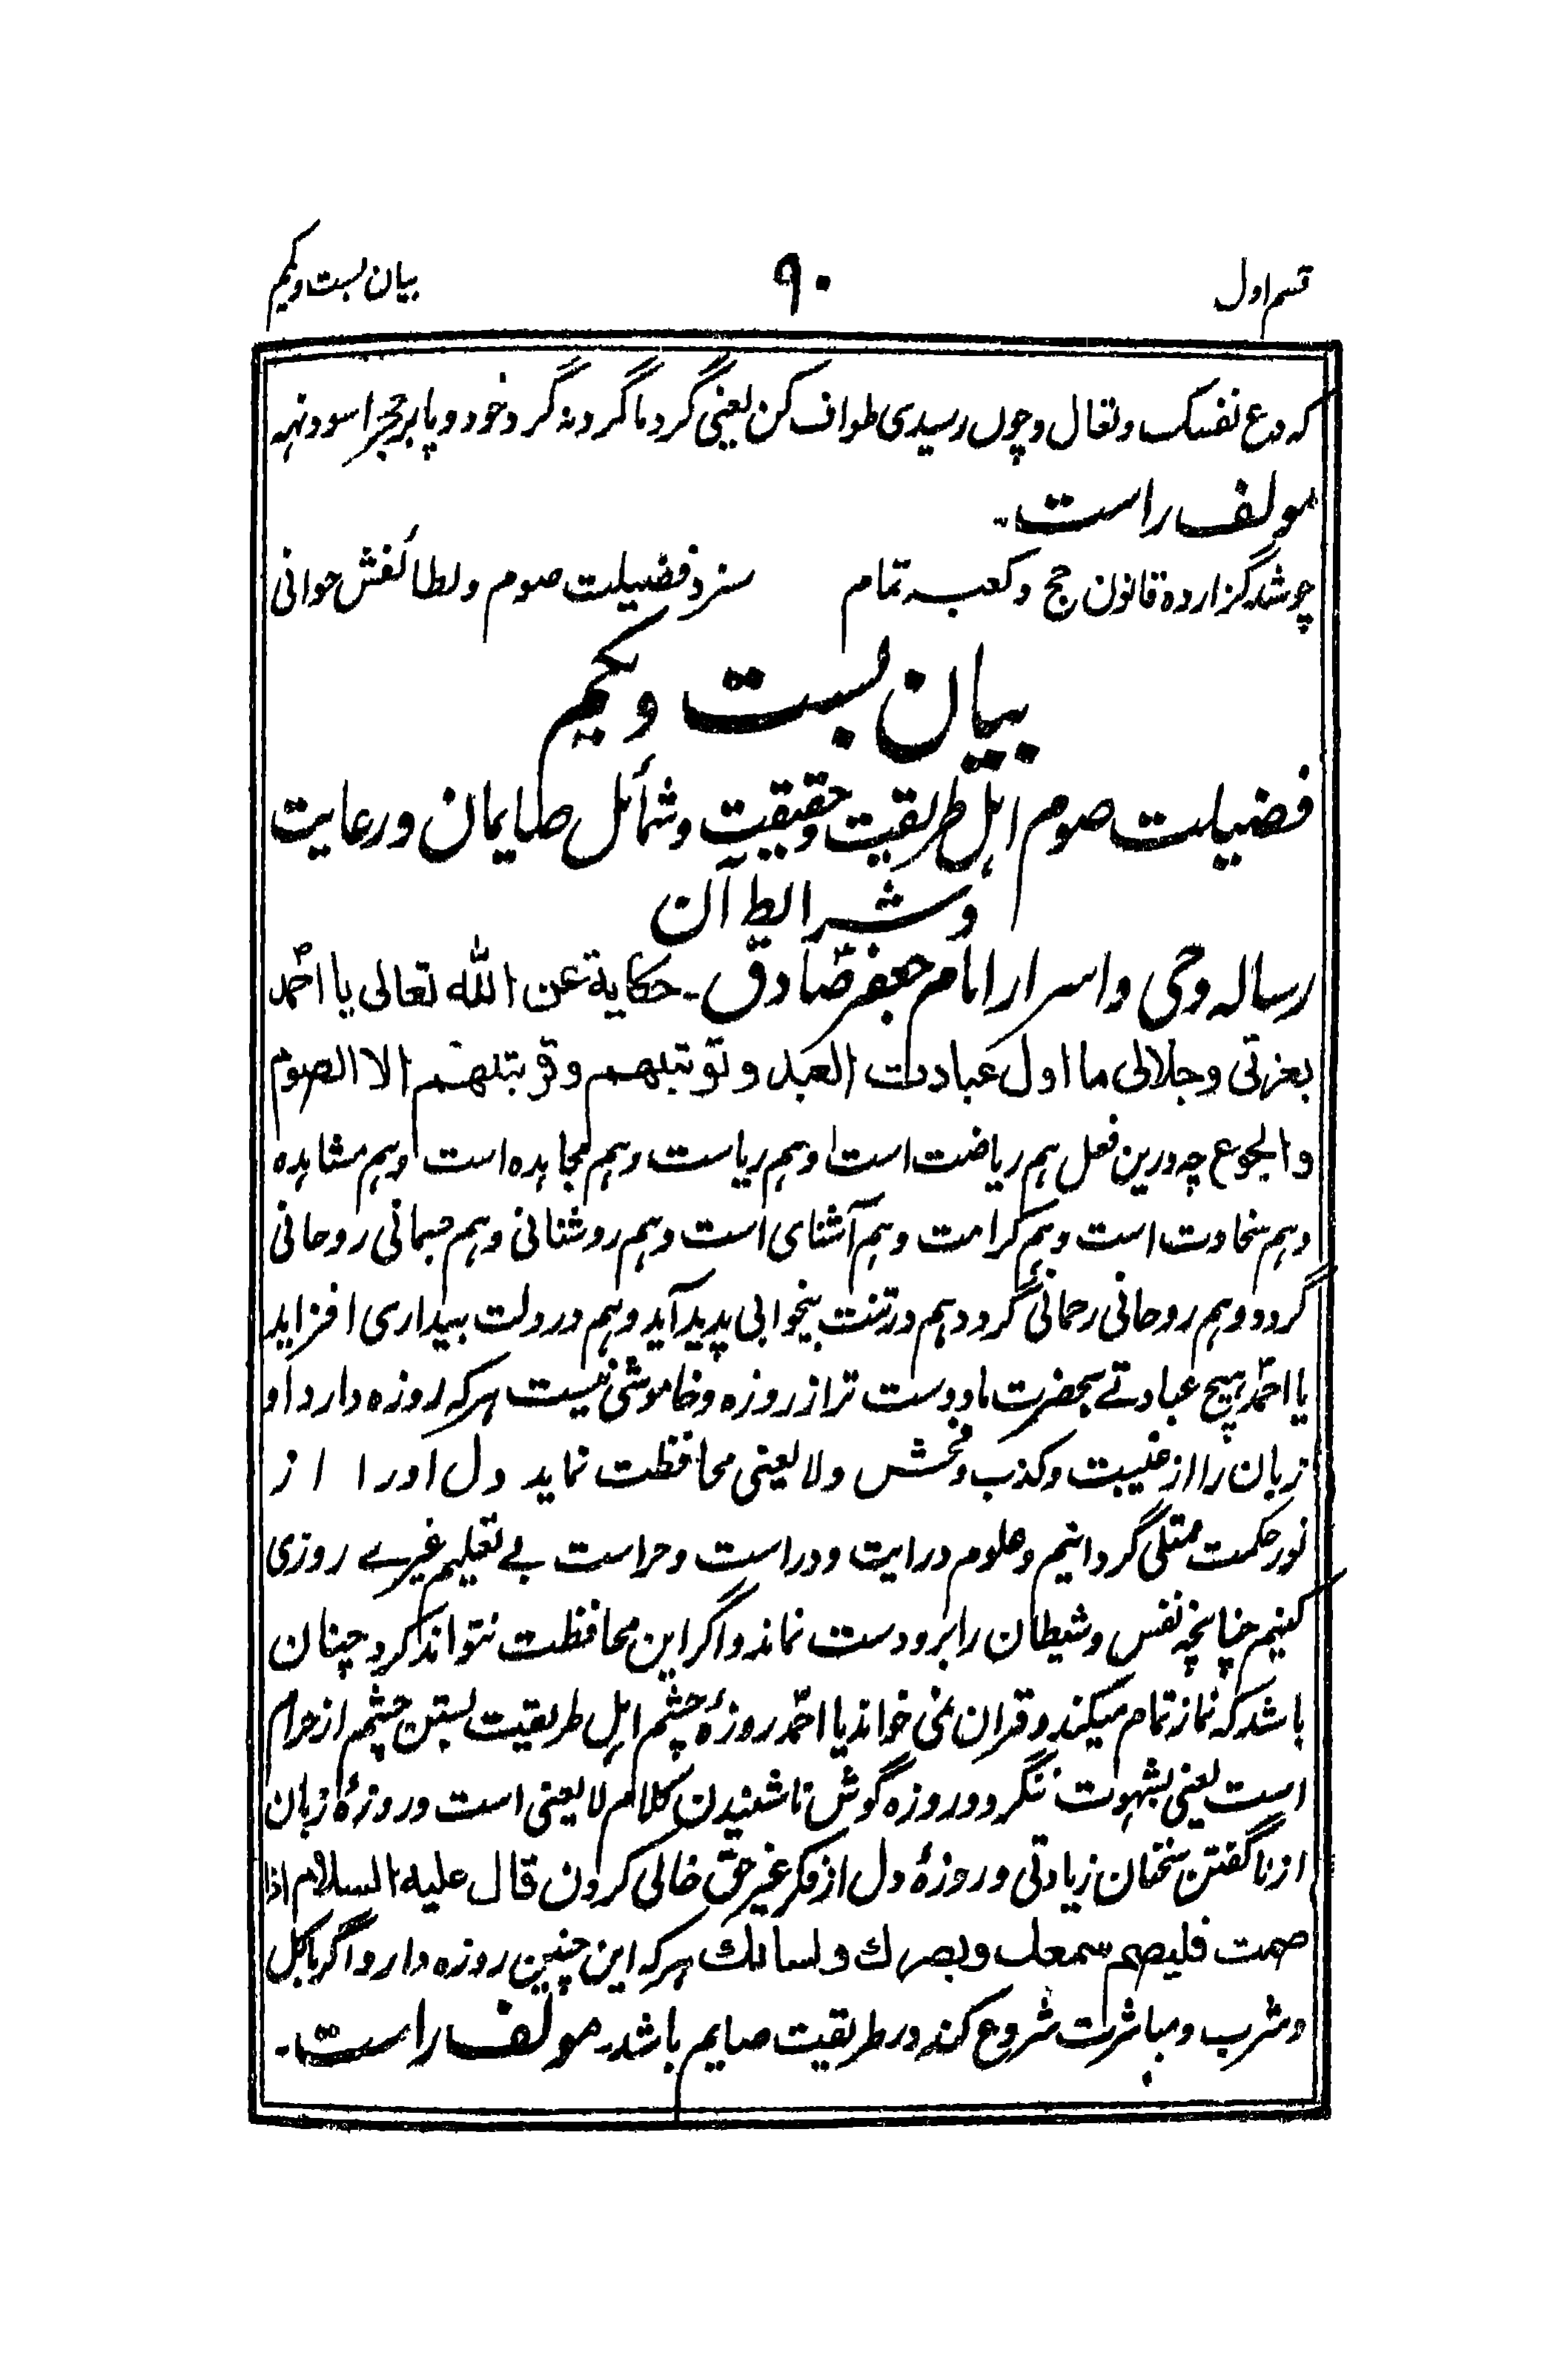 قسم اول ۹۰ بیان بست ویکم
که دع نفسک وتعال وچوں رسیدی طواف کن یعنی گرد ما گرد نه گرد خود و پا بر حجر اسود نہہ
مولف راست۔
چو شد گزارده قانون حج و کعبه تمام سزد فضیلت صوم ولطائفش خوانی
بیان بست ویکم
فضیلت صوم اہل طریقت وحقیقت وشمائل صایمان ورعایت
وشرایط آن
رساله وحی واسرار امام جعفر صادق۔ حکایة عن الله تعالی یا احمد
بعزتی وجلالی ما اول عبادت العبد وتوبتهم وقربتهم الا الصوم
والجوع چه درین فعل ہم ریاضت است وہم ریاست وہم مجاہده است وہم مشاہده
وہم سخاوت است وہم کرامت وہم آشنای است وہم روشنائی وہم جسمانی روحانی
گردد وہم روحانی رحمانی گردد ہم در تنت بیخوابی پدید آید وہم در دلت بیداری افزاید
یا احمد ہیچ عبادتے بحضرت ما دوست تر از روزه وخاموشی نیست ہرکه روزه دارد او
زبان را از غیبت وکذب وفحش ولا یعنی محافظت نماید دل او را از
نور حکمت ممتلی گردانیم وعلوم درایت ودراست وحراست بے تعلیم غیرے روزی
کنیم چنانچه نفس وشیطان را برو دست نماند واگر این محافظت نتواند کرد چنان
باشد که نماز تمام میکند وقران نمی خواند یا احمد روزۂ چشم اہل طریقت بستن چشم از حرام
است یعنی بشہوت ننگرد وروزه گوش ناشنیدن کلام لا یعنی است وروزۂ زبان
از ناگفتن سخنان زیادتی وروزۂ دل از فکر غیر حق خالی کردن قال علیه السلام اذا
صمت فلیصم سمعک وبصرک ولسانک ہرکه این چنین روزه دارد اگر باکل
وشرب ومباشرت شروع کند در طریقت صایم باشد مولف راست۔